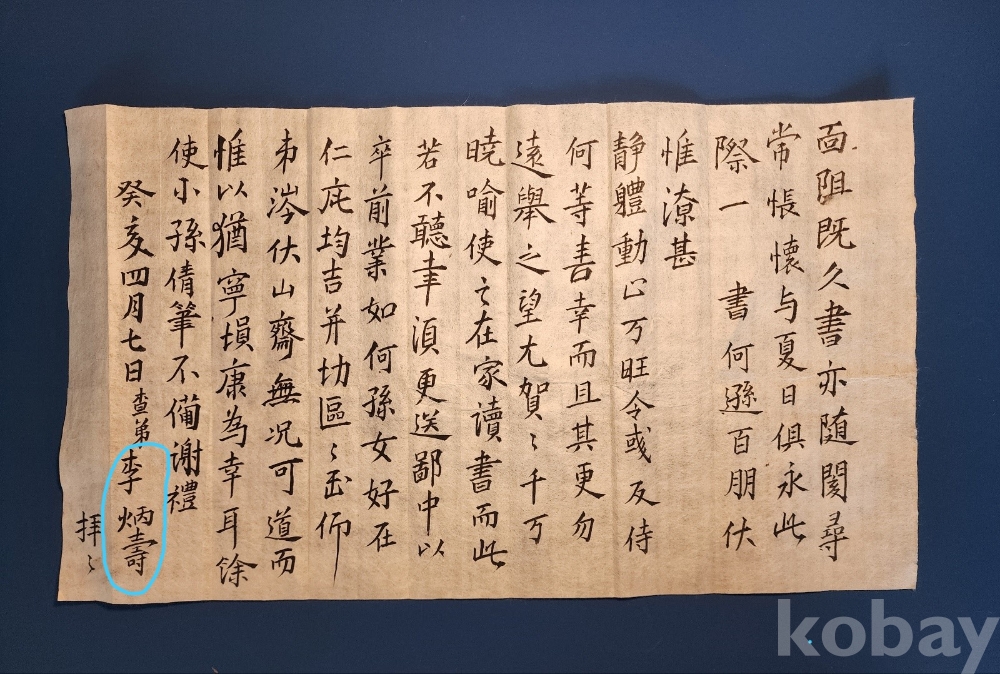 面阻既久書亦随闋尋
常悵懷与夏日俱永此
際一書何遜百朋伏
惟潦甚
静體動止万旺令或及侍
何等善幸而且其更勿
遠舉之望尤賀〻千万
曉喻使之在家讀書而此
若不聽幸湏更送鄙中以
卒前業如何孫女好在
仁庇均吉并切區〻至仰
弟涔伏山齋無况可道而
惟以猶寧損康為幸耳馀
使小孫倩筆不備謝禮
癸亥四月七日查弟李炳壽
拜〻
kobay